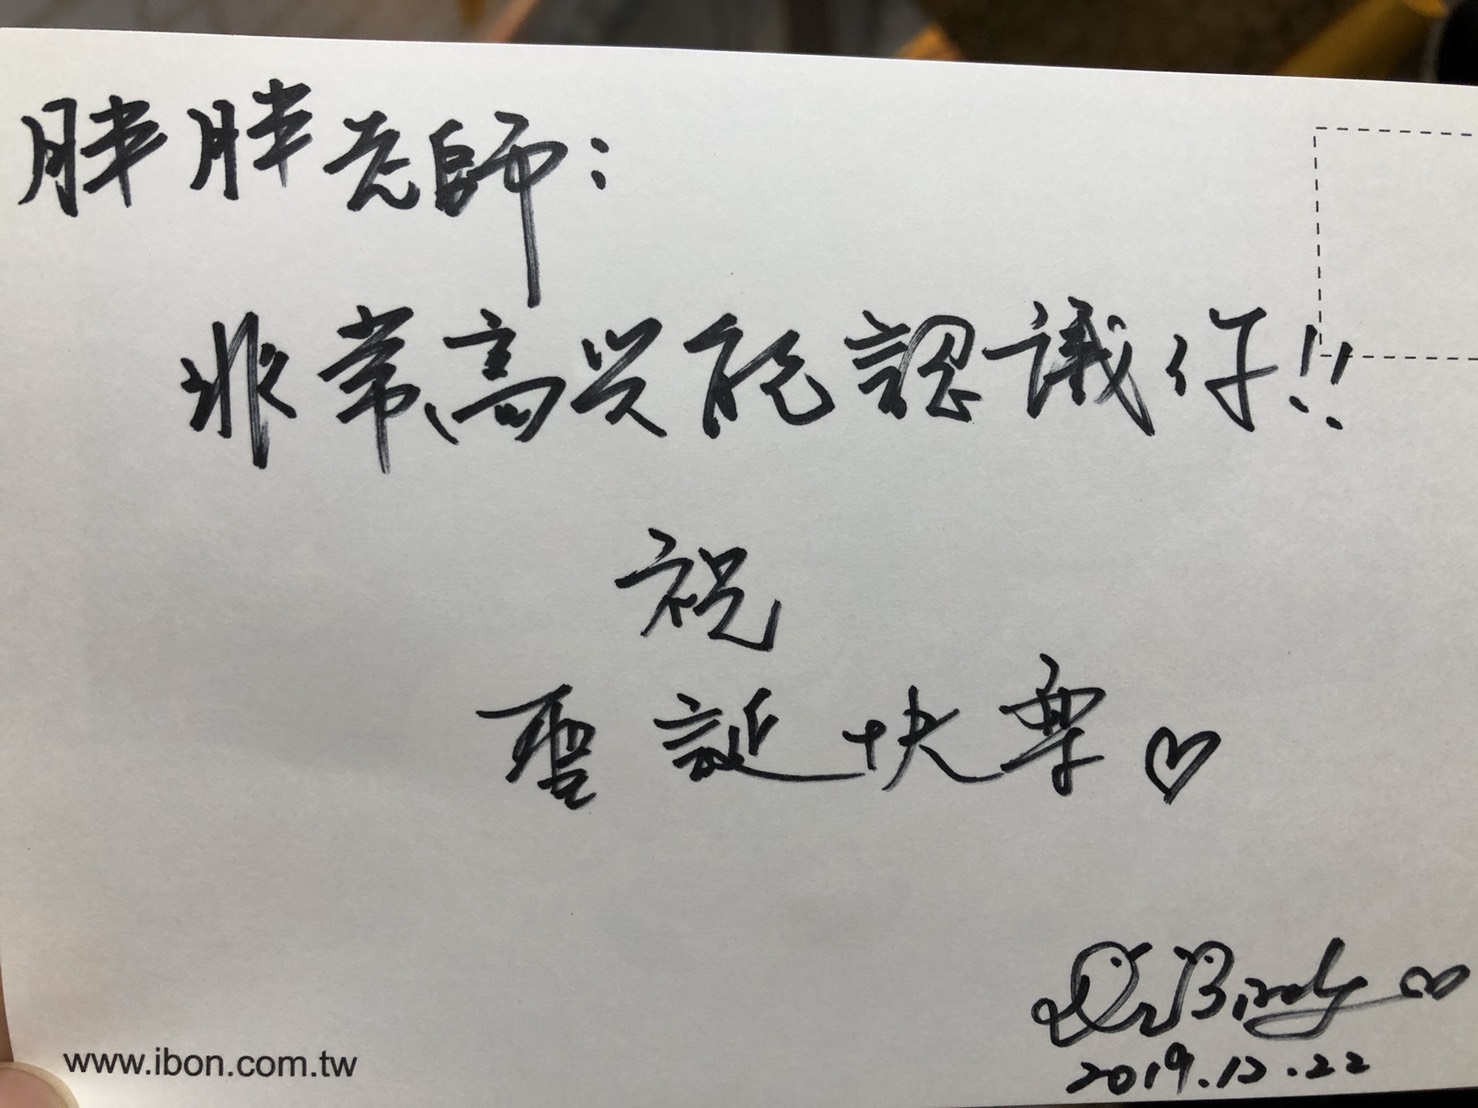 胖胖老師:
非常高兴能認識你!!
祝
聖誕快樂♡
Dr. Birdy
2019.12.22
www.ibon.com.tw